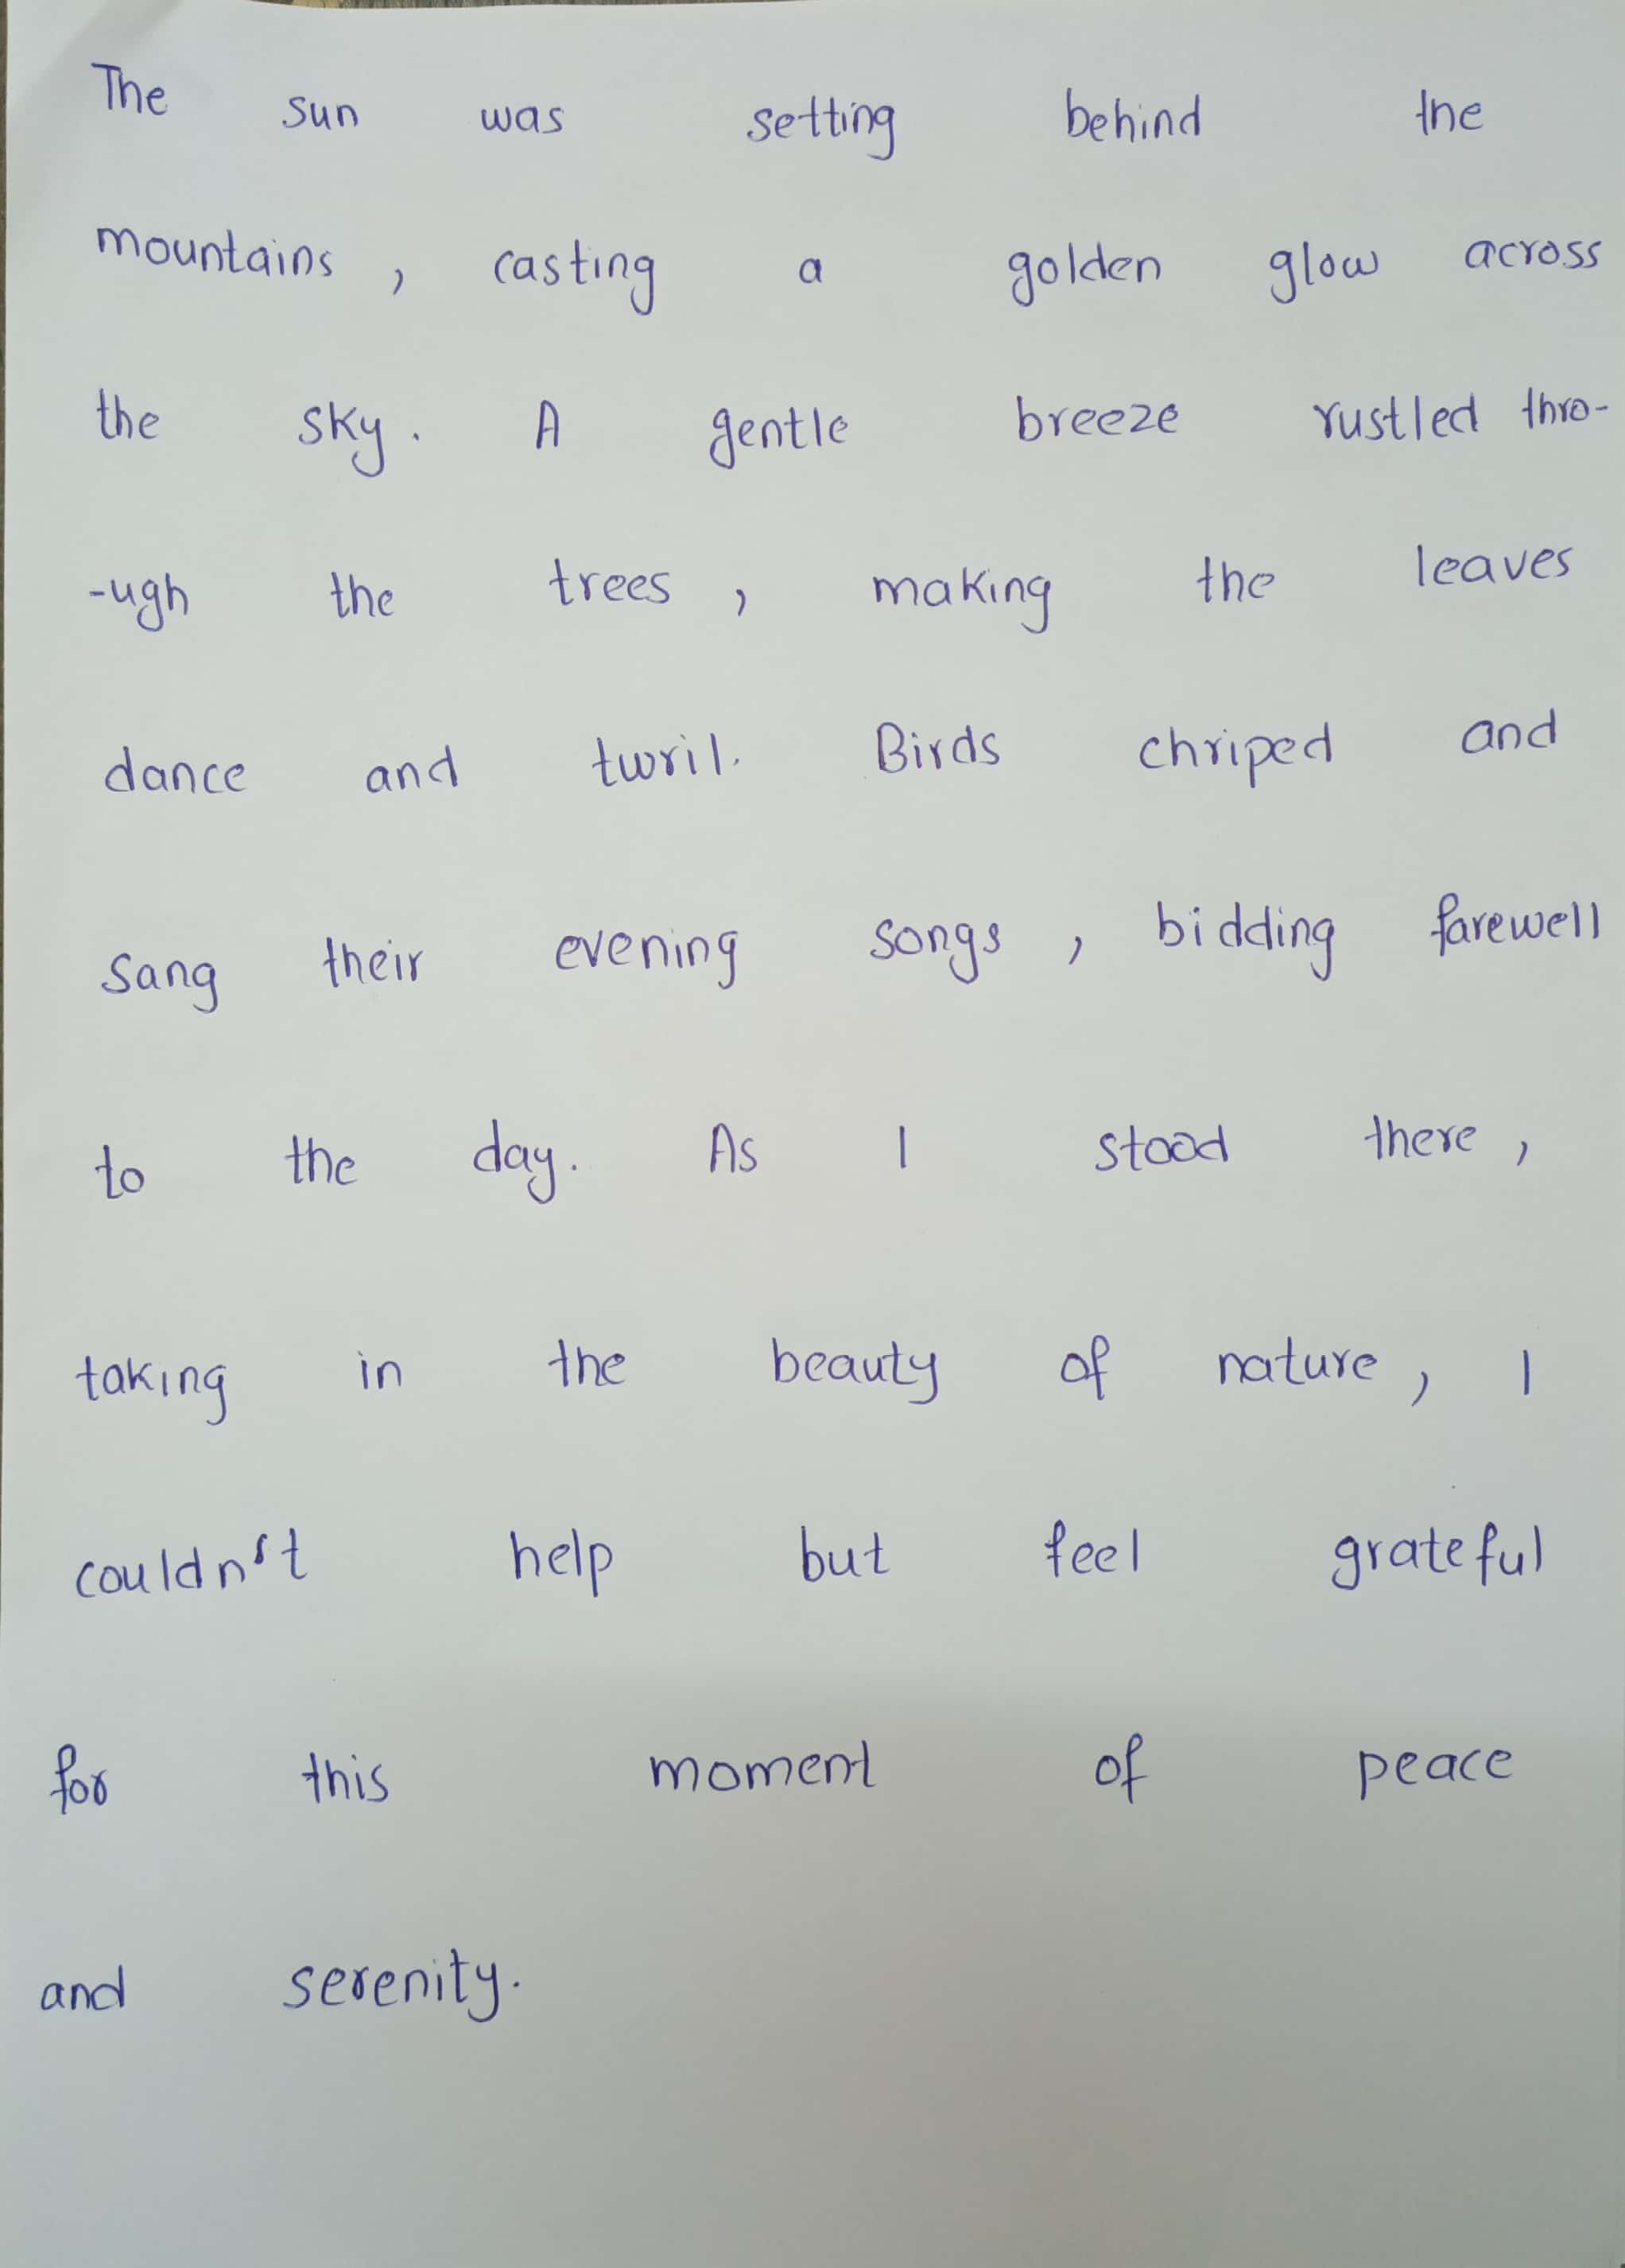 The sun was setting behind the
mountains , casting a golden glow across
the sky. A gentle breeze rustled thro-
-ugh the trees , making the leaves
dance and twril. Birds chriped and
sang their evening songs , bidding farewell
to the day. As I stood there ,
taking in the beauty of nature , I
couldn't help but feel grateful
for this moment of peace
and serenity.